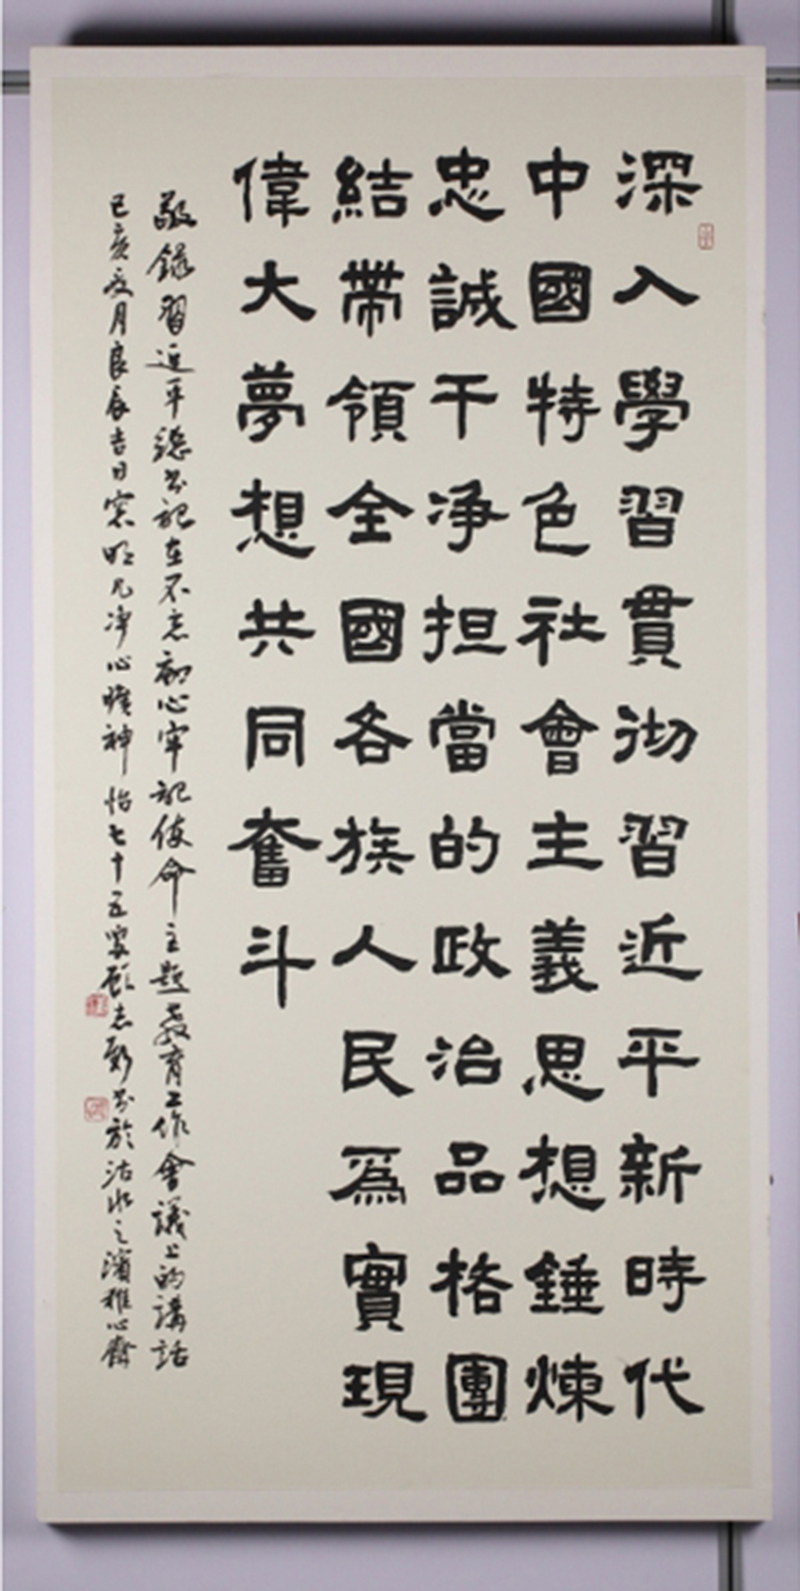 深入學習貫彻習近平新時代
中國特色社會主義思想錘煉
忠誠干净担當的政治品格團
結帶領全國各族人民為實現
偉大夢想共同奮斗
敬錄習近平總書記在不忘初心牢記使命主題教育工作會議上的講話
己亥夏月良辰吉日窓明几净心曠神怡七十五叟顧志新書於沽水之濱雅心齋